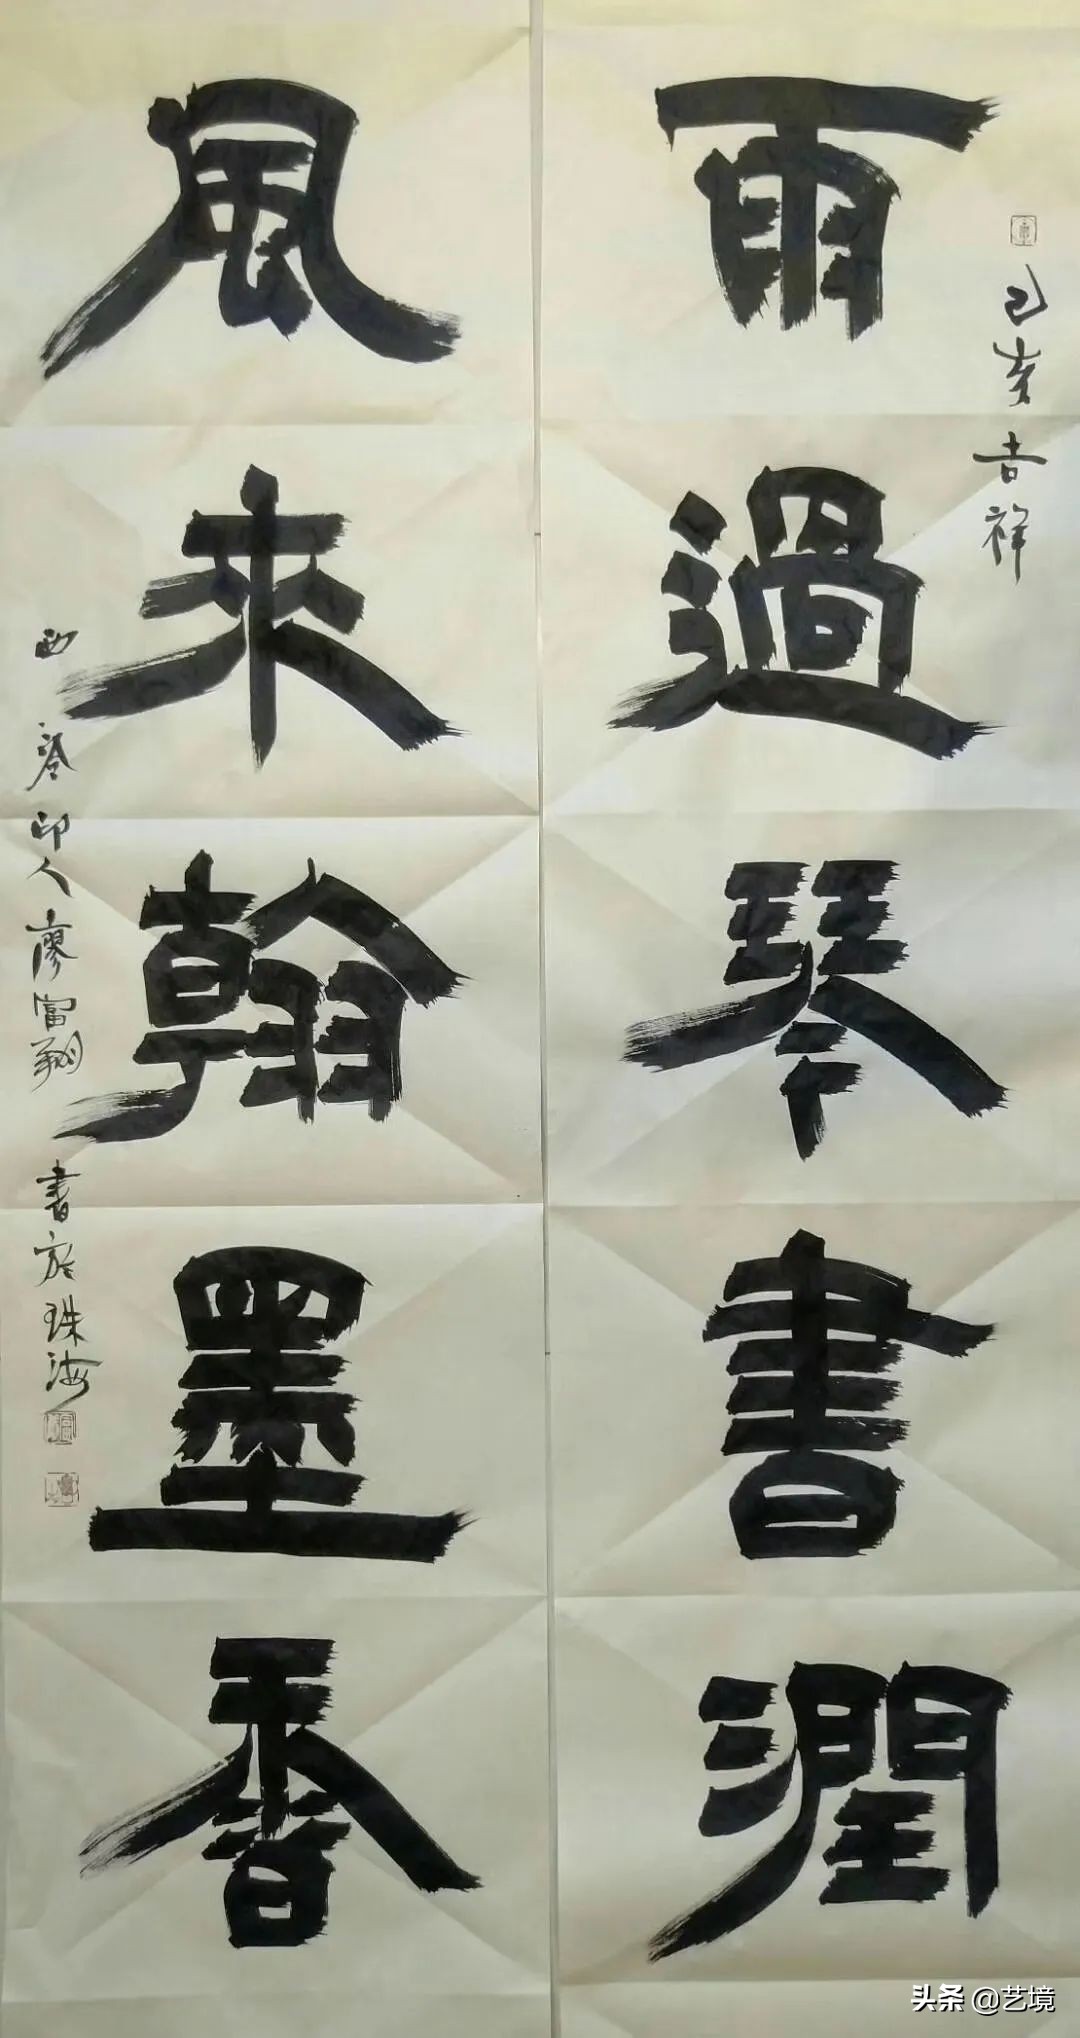 己亥吉祥
雨過琴書潤
風來翰墨香
西泠印人廖富翔書於珠海
头条 @艺境